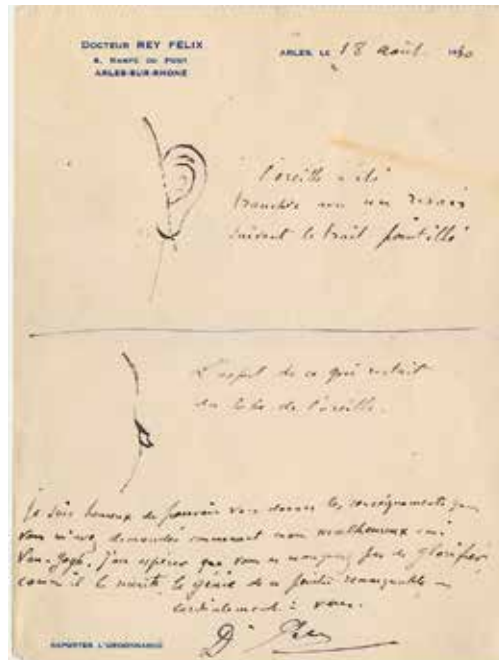 DOCTEUR REY FÉLIX
6, RAMPE DU PONT
ARLES-SUR-RHONE
ARLES, LE 18 août 1930
l'oreille a été
tranchée avec un rasoir
suivant le trait pointillé
L'aspect de ce qui restait
du lobe de l'oreille.
Je suis heureux de pouvoir vous donner les renseignements que
vous m'avez demandés concernant mon malheureux ami
Van-Gogh. J'ose espérer que vous ne manquerez pas de glorifier
comme il le mérite le génie de ce peintre remarquable
Cordialement à vous.
Dr Rey
RAPPORTER L'ORDONNANCE